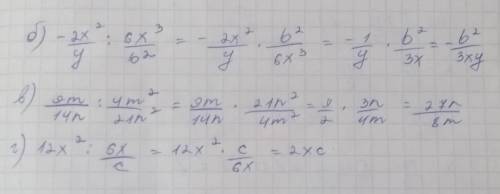 б) -2x²/y : 6x³/b² = - 2x²/y · b²/6x³ = -1/y · b²/3x = -b²/3xy
в) 9m/14n : 4m²/21n² = 9m/14n · 21n²/4m² = 9/2 · 3n/4m = 27n/8m
г) 12x² : 6x/c = 12x² · c/6x = 2xc